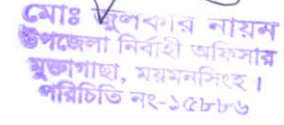 মোঃ জুলকার নায়ন
উপজেলা নির্বাহী অফিসার
মুক্তাগাছা, ময়মনসিংহ।
পরিচিতি নং-১৫৮৮৬